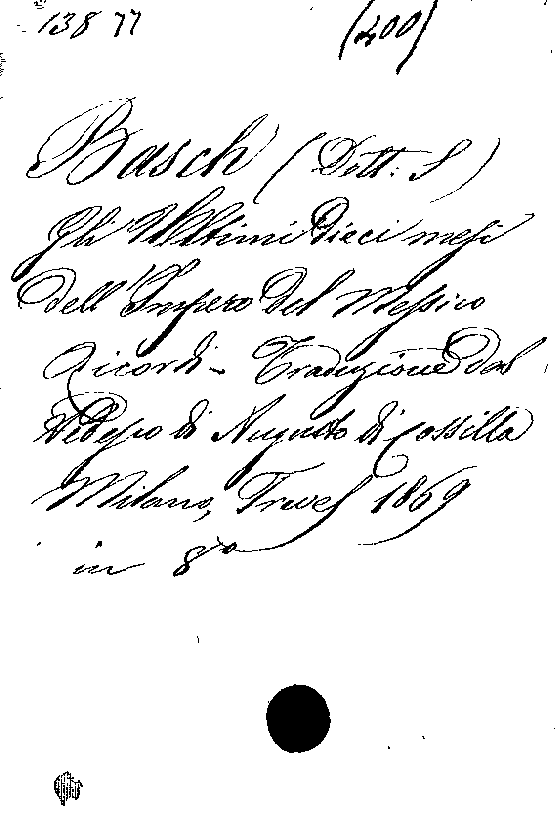 138 77 (400)
Basch (Dott. S)
Gli Ultimi Dieci mesi
dell'Impero del Messico
Ricordi - Traduzione dal
tedesco di Augusto di Cossilla
Milano, Treves 1869
in 8º